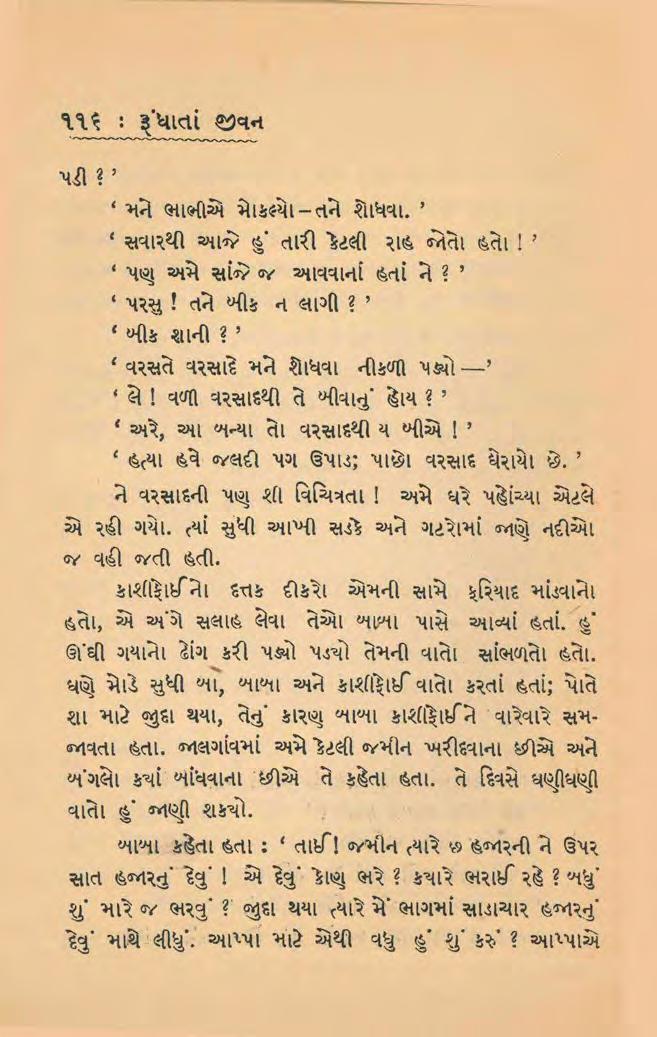 ૧૧૬ : રૂંધાતાં જીવન
પડી ? ’
‘ મને ભાભીએ મોકલ્યો – તને શોધવા. ’
‘ સવારથી આજે હું તારી કેટલી રાહ જોતો હતો ! ’
‘ પણ અમે સાંજે જ આવવાનાં હતાં ને ? ’
‘ પરસુ ! તને બીક ન લાગી ? ’
‘ બીક શાની ? ’
‘ વરસતે વરસાદે મને શોધવા નીકળી પડ્યો —’
‘ લે ! વળી વરસાદથી તે બીવાનું હોય ? ’
‘ અરે, આ બન્યા તો વરસાદથી ય બીએ ! ’
‘ હત્યા હવે જલદી પગ ઉપાડ; પાછો વરસાદ ઘેરાયો છે. ’
ને વરસાદની પણ શી વિચિત્રતા ! અમે ઘરે પહોંચ્યા એટલે
એ રહી ગયો. ત્યાં સુધી આખી સડકે અને ગટરોમાં જાણે નદીઓ
જ વહી જતી હતી.
કાશીફોઈનો દત્તક દીકરો એમની સામે ફરિયાદ માંડવાનો
હતો, એ અંગે સલાહ લેવા તેઓ બાબા પાસે આવ્યાં હતાં. હું
ઊંઘી ગયાનો ઢોંગ કરી પડ્યો પડ્યો તેમની વાતો સાંભળતો હતો.
ઘણે મોડે સુધી બા, બાબા અને કાશીફોઈ વાતો કરતાં હતાં; પોતે
શા માટે જુદા થયા, તેનું કારણ બાબા કાશીફોઈને વારેવારે સમ-
જાવતા હતા. જાલગાંવમાં અમે કેટલી જમીન ખરીદવાના છીએ અને
બંગલો ક્યાં બાંધવાના છીએ તે કહેતા હતા. તે દિવસે ઘણીઘણી
વાતો હું જાણી શક્યો.
બાબા કહેતા હતા : ‘ તાઈ ! જમીન ત્યારે છ હજારની ને ઉપર
સાત હજારનું દેવું ! એ દેવું કોણ ભરે ? ક્યારે ભરાઈ રહે ? બધું
શું મારે જ ભરવું ? જુદા થયા ત્યારે મેં ભાગમાં સાડાચાર હજારનું
દેવું માથે લીધું. આપ્પા માટે એથી વધુ હું શું કરું ? આપ્પાએ